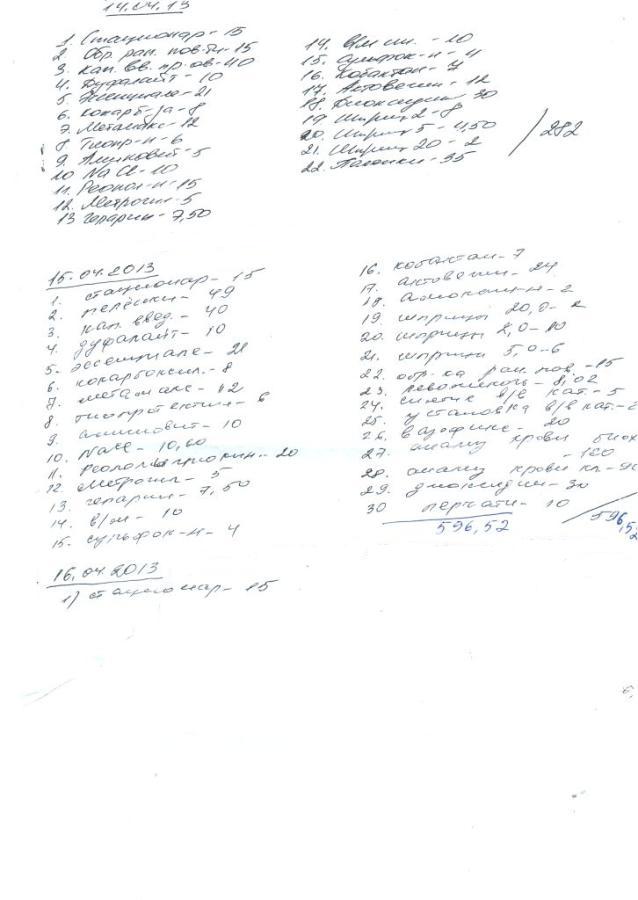 14.04.13
1. Стационар - 15
2. Обр. ран. пов-ти - 15
3. Кап. вв. пр. ов - 40
4. Дуфалайт - 10
5. Эссенциале - 21
6. Кокарб-за - 8
7. Метамакс - 12
8 Тиопр-н - 6
9. Аминовит - 5
10 NaCl - 10
11. Реопол-н - 15
12. Метрогил - 5
13 гепарин - 7,50
14. в/м ин. - 10
15. Сульфок-н - 4
16. Кобактан - 7
17. Актовегин - 12
18. Диоксидин 30
19 Шприц 2 - 8
20. Шприц 5 - 4,50
21. Шприц 20 - 2
22. Пеленки - 35
/ 282
15.04.2013
1. стационар - 15
2. пелёнки - 49
3. кап. введ. - 40
4. дуфалайт - 10
5. эссенциале - 21
6. кокарбоксил. - 8
7. метамакс - 12
8. тиопротектин - 6
9. аминовит - 10
10. NaCl - 10,60
11. - 20
12. Метрогил - 5
13. гепарин - 7,50
14. в/м - 10
15. сульфок-н - 4
16. кобактан - 7
17. актовегин - 24
18. - 2
19. шприцы 20,0 -
20. шприцы 2,0 - 10
21. шприцы 5,0 - 6
22. обр-ка ран. пов. - 15
23. левомеколь - 8,02
24. снятие в/в кат. - 5
25. установка в/в кат. -
26. вазофикс - 20
27. анализ крови биох
- 160
28. анализ крови кл - 90
29. диоксидин - 30
30 перчатки - 10
596,52
/ 596,52
16.04.2013
1) стационар - 15